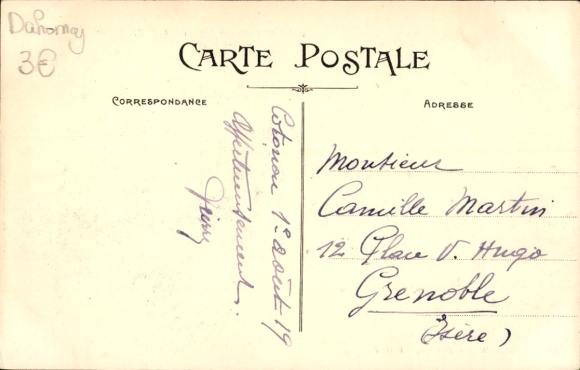 Dahomey
3€
CARTE POSTALE
CORRESPONDANCE
ADRESSE
Cotonou 1º août 19
Affectueusement.
Pierre
Monsieur
Camille Martin
12 Place V. Hugo
Grenoble
(Isère)